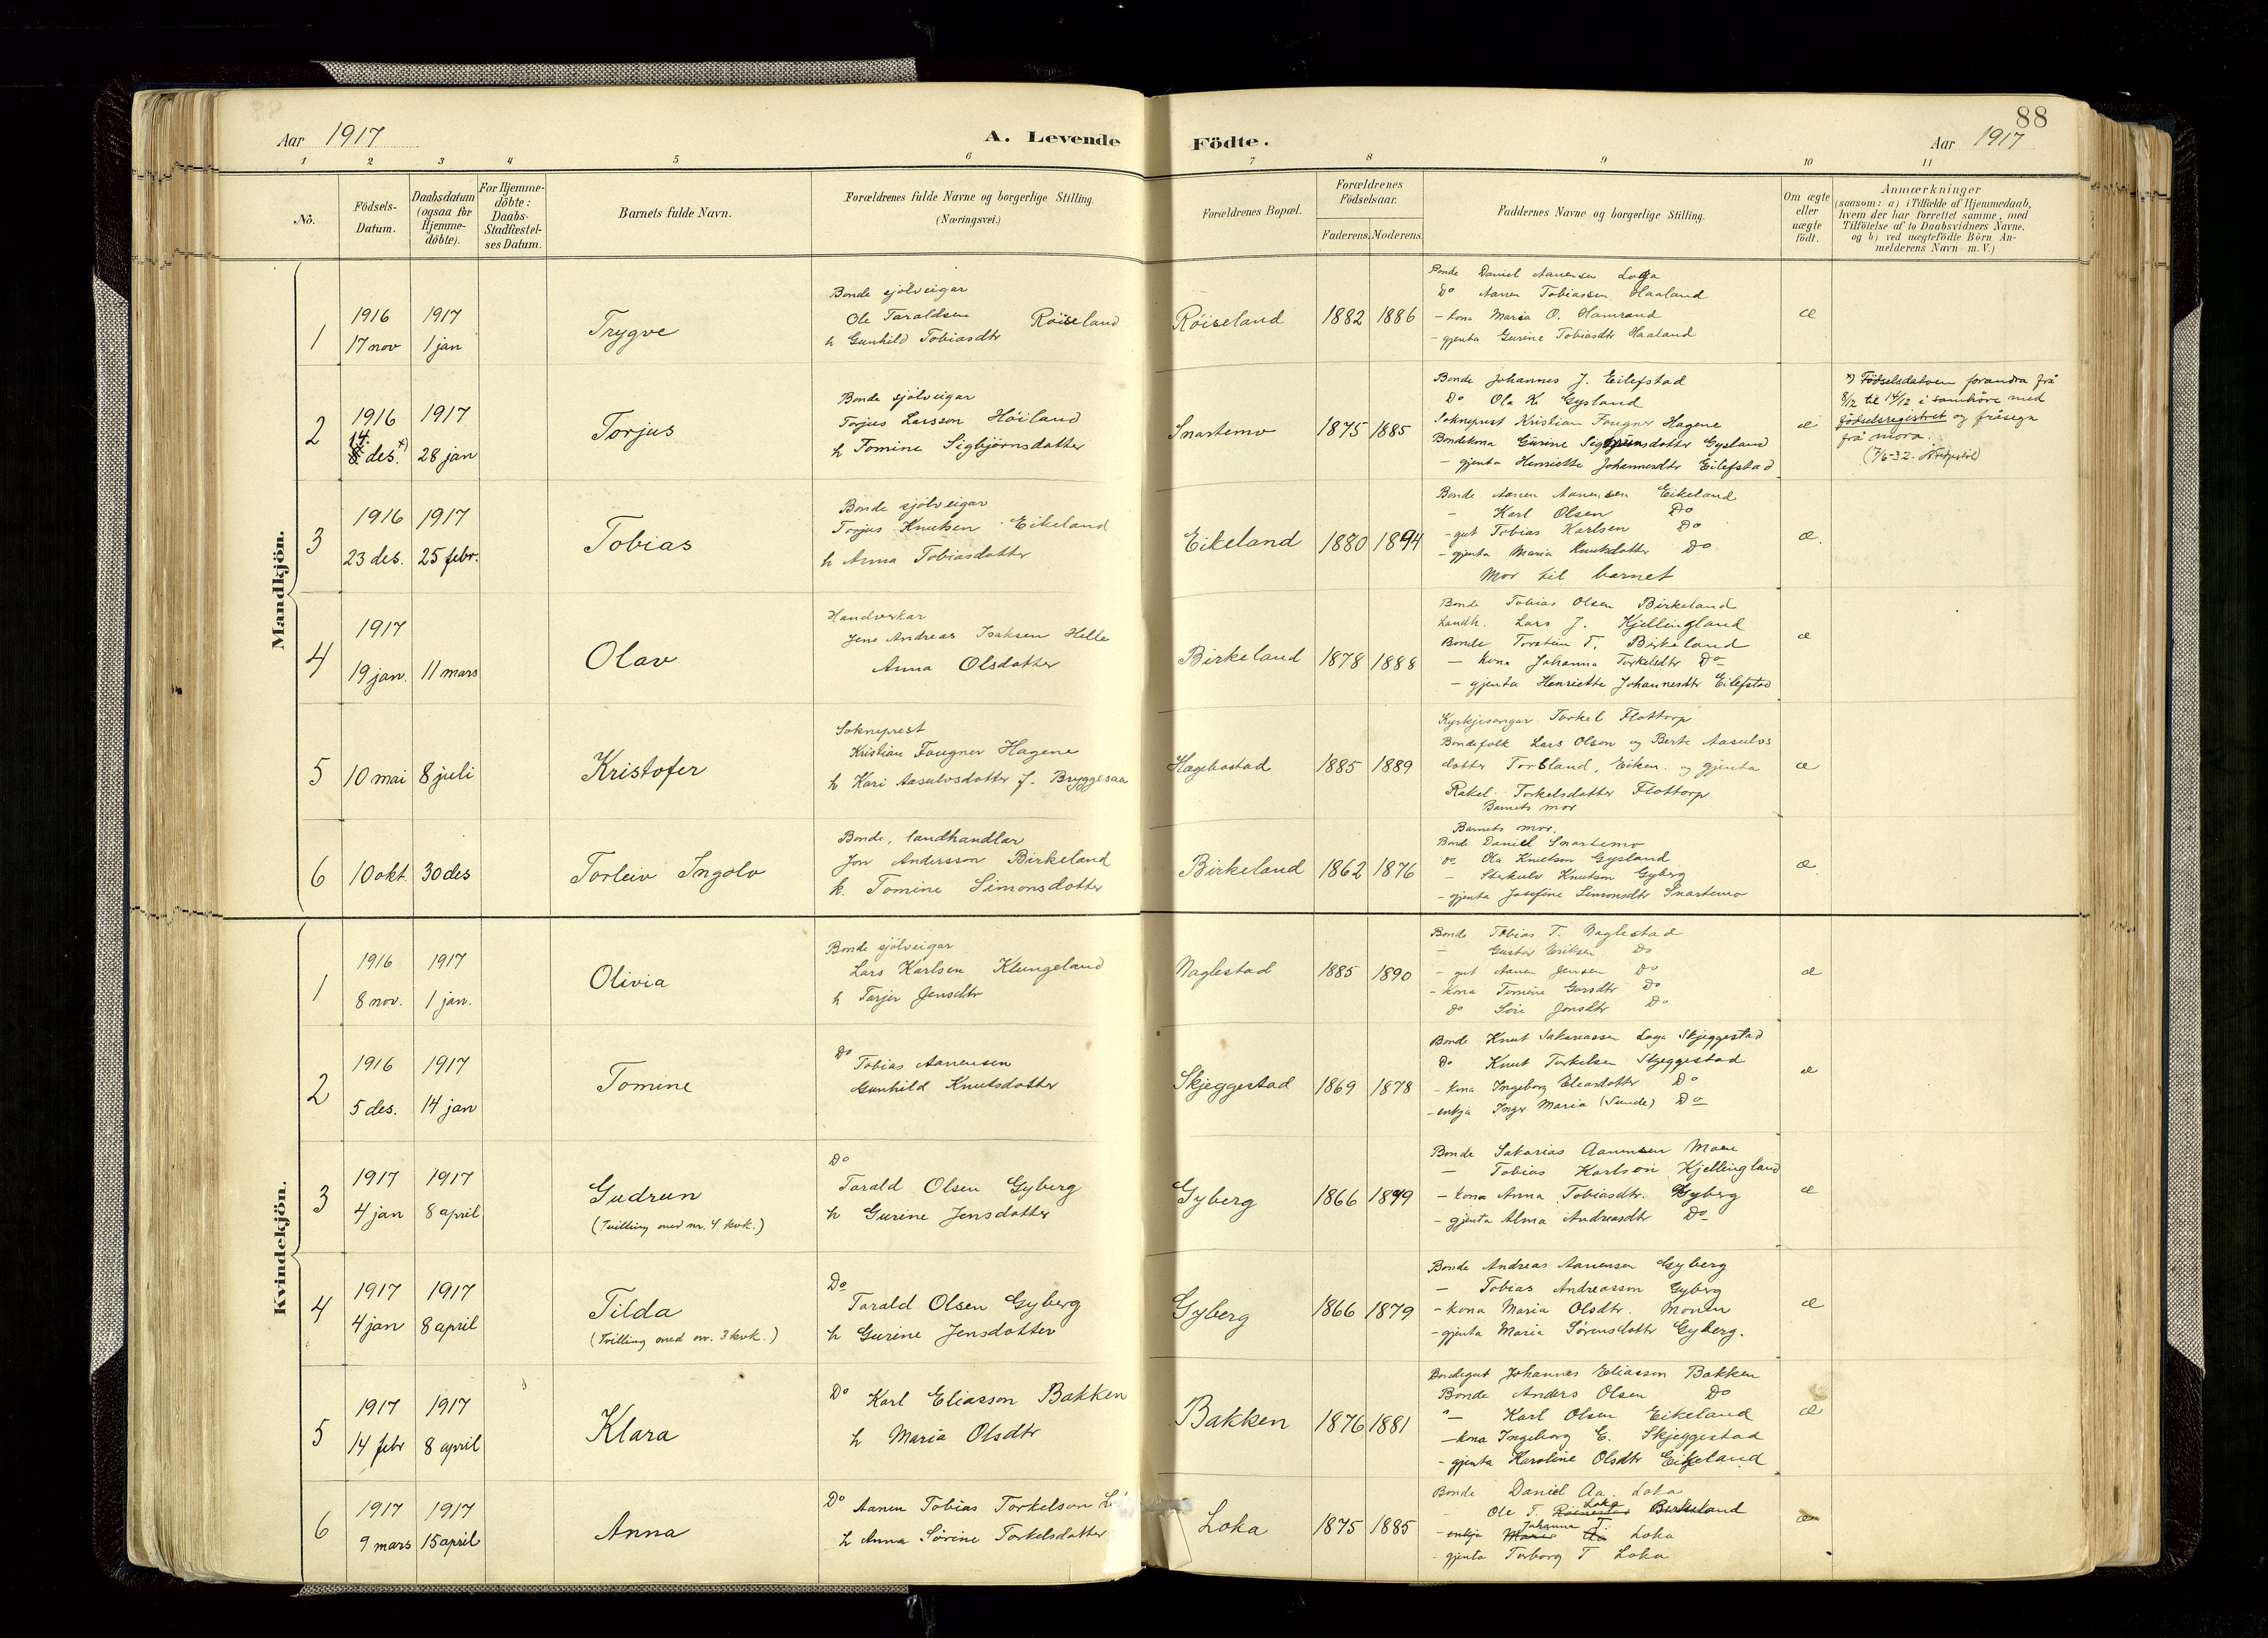 88
Aar 1917
A. Levende Födte.
Aar 1917
1 2 3 4 5 6 7 8 9 10 11
No.
Födsels-Datum.
Daabsdatum (ogsaa for Hjemme-döbte).
For Hjemme-döbte: Daabs-Stadfæstel-ses Datum.
Barnets fulde Navn.
Forældrenes fulde Navne og borgerlige Stilling.
(Næringsvei.)
Forældrenes Bopæl.
Forældrenes Födselsaar.
Faderens. Moderens.
Faddernes Navne og borgerlige Stilling.
Om ægte eller uægte født.
Anmærkninger
(saasom: a) i Tilfælde af Hjemmedaab,
hvem der har forrettet samme, med
Tilföielse af to Daabsvidners Navne.
og b) ved uægtefödte Börn An-
melderens Navn m. V.)
Mandkjön.
1
1916
17 nov
1917
1 jan
Trygve
Bonde sjölveigar
Ole Taraldsen Röiseland
h Gunhild Tobiasdtr
Röiseland
1882 1886
Bonde Daniel Aanensen Loga
Do Aanen Tobiassen Haaland
- kona Maria O. Hamrand
- gjenta Gurine Tobiasdtr Haaland
æ
2
1916
14.
8 des. x)
1917
28 jan
Torjus
Bonde sjölveigar
Torjus Larsson Höiland
h Tomine Sigbjörnsdatter
Snartemo
1875 1885
Bonde Johannes J. Eilefstad
Do Ola K. Gysland
Sokneprest Kristian Fougner Hagene
Bondekona Gurine Sigbjörnsdotter Gysland
- gjenta Henriette Johannesdtr Eilefstad
æ
x) Födselsdatoen forandra frå
8/12 til 14/12 i samhöve med
födselsregistret og fråsegn
frå mora.
3
1916
23 des.
1917
25 febr.
Tobias
Bonde sjölveigar
Torjus Knutsen Eikeland
h Anna Tobiasdotter
Eikeland
1880 1894
Bonde Aanen Aanensen Eikeland
- Karl Olsen Do
- gut Tobias Karlsen Do
- gjenta Maria Knutsdotter Do
Mor til barnet
æ.
4
1917
19 jan.
11 mars
Olav
Handverkar
Jens Andreas Isaksen Helle
Anna Olsdotter
Birkeland
1878 1888
Bonde Tobias Olsen Birkeland
Landh. Lars J. Kjellingland
Bonde Torstein T. Birkeland
- kona Johanna Torkelsdtr Do
- gjenta Henriette Johannesdtr Eilefstad
æ
5
10 mai
8 juli
Kristofer
Sokneprest
Kristian Fougner Hagene
h Kari Aasulvsdotter f. Bryggesaa
Hægebostad
1885 1889
Kyrkjesongar Torkel Flottorp
Bondefolk Lars Olson og Berte Aasulvs
dotter Torsland, Eiken. og gjenta
Rakel Torkelsdotter Flottorp
Barnets mor
æ
6
10 okt.
30 des
Torleiv Ingolv
Bonde, landhandlar
Jon Andersson Birkeland
h. Tomine Simonsdotter
Birkeland
1862 1876
Barnets mor.
Bonde Daniel Snartemo
do Ola Knutson Gysland
- Sterkulv Knutson Gyberg
- gjenta Josefine Simonsdtr Snartemo
æ.
Kvindekjön.
1
1916
8 nov.
1917
1 jan.
Olivia
Bonde sjölveigar
Lars Karlsen Klungeland
h Tarjer Jensdtr
Naglestad
1885 1890
Bonde Tobias T. Naglestad
- Gustav Eriksen Do
- gut Aanen Jensen Do
- kona Tomine Do
Do Siri Jonsdtr Do
æ
2
1916
5 des.
1917
14 jan
Tomine
Do
Tobias Aanensen
Gunhild Knutsdotter
Skjeggestad
1869 1878
Bonde Knut Sakariassen Loga Skjeggestad
Do Knut Torkelsen Skjeggestad
- kona Ingeborg Eliasdotter Do
- enkja Inger Maria (Sunde) Do
æ
3
1917
4 jan
1917
8 april
Gudrun
(Tvilling med nr. 4 kvk.)
Do
Tarald Olsen Gyberg
h Gurine Jensdotter
Gyberg
1866 1879
Bonde Sakarias Aanensen Moen
- Tobias Karlson Kjellingland
- kona Anna Tobiasdtr. Gyberg
- gjenta Alma Andreasdtr Do
æ
4
1917
4 jan
1917
8 april
Tilda
(Tvilling med nr. 3 kvk.)
Do
Tarald Olsen Gyberg
h Gurine Jensdotter
Gyberg
1866 1879
Bonde Andreas Aanensen Gyberg
- Tobias Andreasson Gyberg
- kona Maria Olsdtr. Monen
- gjenta Maria Sörensdotter Gyberg.
æ
5
1917
14 febr
1917
8 april
Klara
Do Karl Eliasson Bakken
h Maria Olsdtr
Bakken
1876 1881
Bondegut Johannes Eliasson Bakken
Bonde Anders Olsen Do
"- Karl Olsen Eikeland
- kona Ingeborg E. Skjeggestad
- gjenta Karoline Olsdtr Eikeland
æ
6
1917
9 mars
1917
15 april
Anna
Do Aanen Tobias Torkelson
h Anna Sörine Torkelsdotter
Loka
1875 1885
Bonde Daniel Aa. Loka
Ole T. Loka Birkeland
- enkja Johanne T. Loka
- gjenta Torborg T Loka
æ